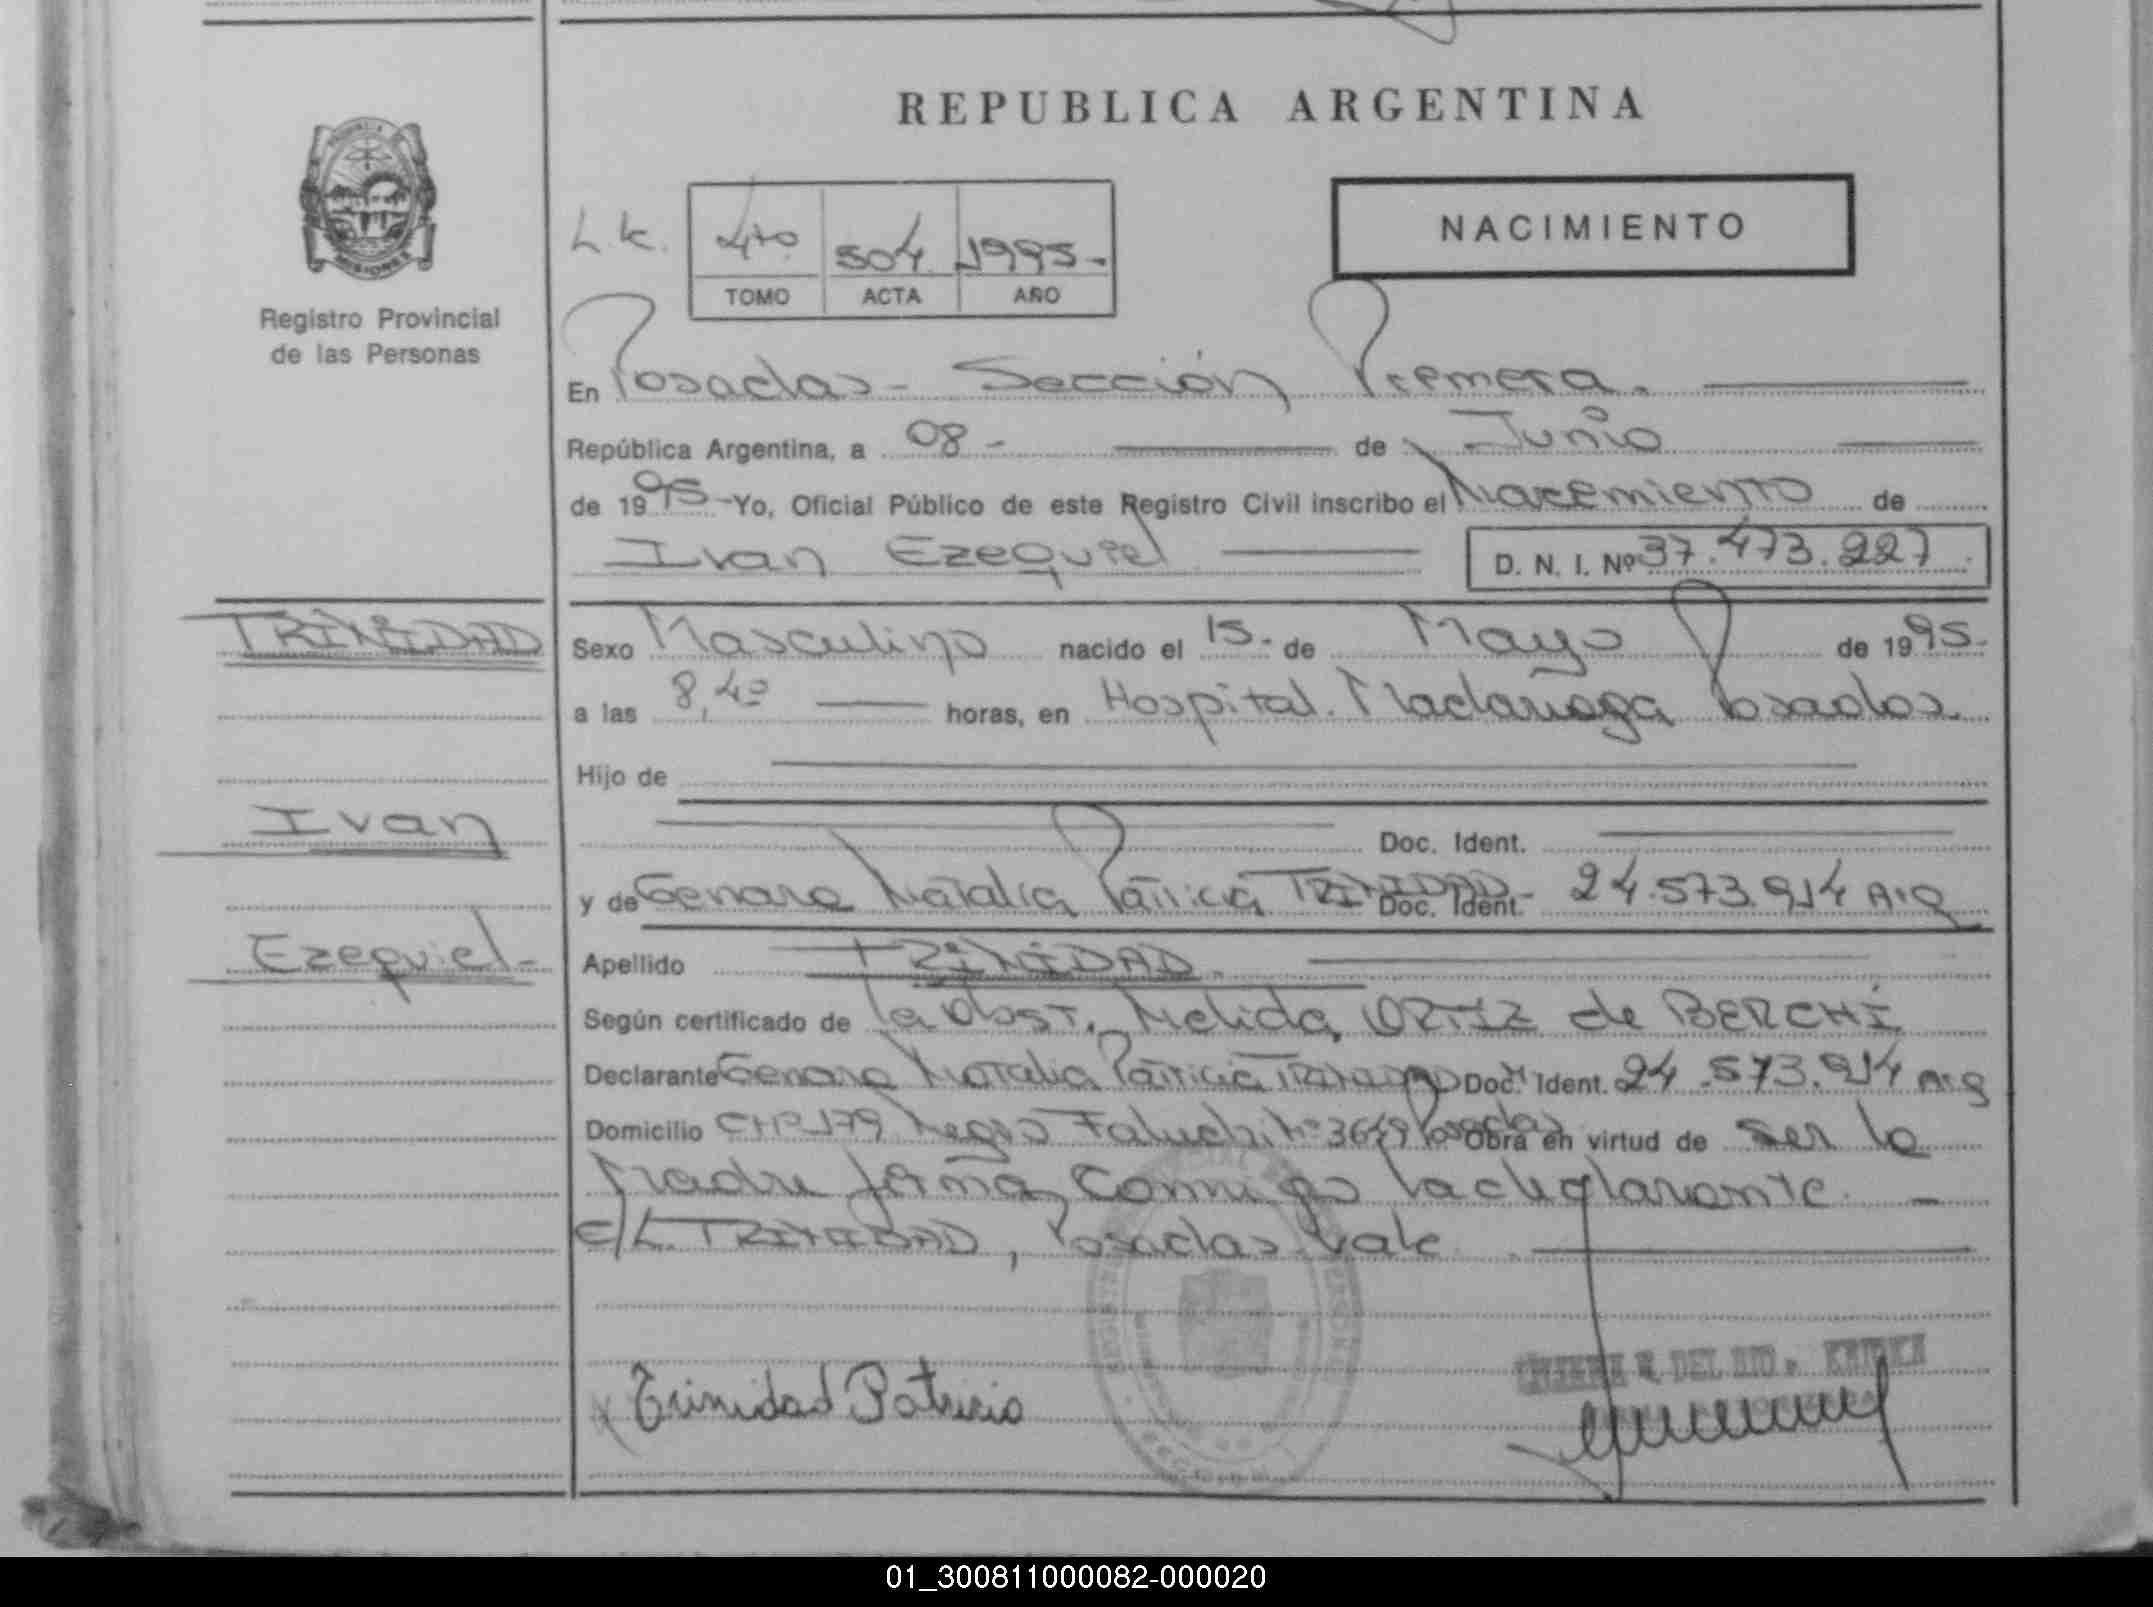 REPUBLICA ARGENTINA
NACIMIENTO
L.K. 4to 504 1995.-
TOMO ACTA AÑO
MISIONES
Registro Provincial
de las Personas
En Posadas - Sección Primera.
República Argentina, a 08 - de Junio
de 1995 - Yo, Oficial Público de este Registro Civil inscribo el Nacimiento de
Ivan Ezequiel D. N. I. Nº 37.473.227.
TRINIDAD
Sexo Masculino nacido el 15.- de Mayo de 1995.-
a las 8,40 horas, en Hospital. Madariaga Posadas.
Hijo de
Ivan
Doc. Ident.
y de Genara Natalia Patricia TRINIDAD Doc. Ident. 24.573.914 Arg
Ezequiel-
Apellido TRINIDAD.
Según certificado de la Obst. Nelida ORTIZ de BERCHI
Declarante Genara Natalia Patricia TRINIDAD Doc. Ident. 24.573.914 Arg
Domicilio CH 179 Negro Falucho Nº Posadas Obra en virtud de ser la
Madre firma Conmigo la declarante. -
E/L. TRINIDAD, Posadas Vale
Trinidad Patricia
DEL
01_300811000082-000020